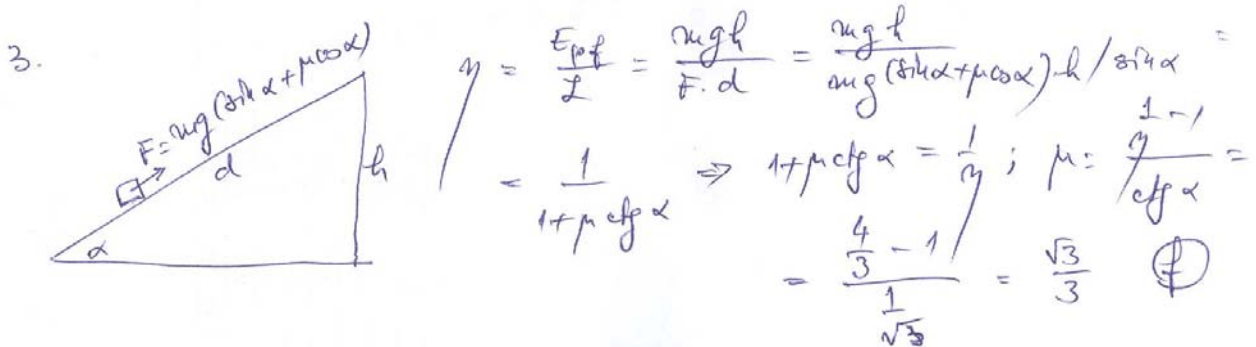 3.
F=mg(sin α+μcosα)
d
h
α
η = E_pf / L = mgh / F.d = mgh / mg(sinα+μcosα).h/sinα =
= 1 / 1+μctgα ⇒ 1+μctgα = 1/η ; μ = (1/η -1) / ctgα =
= (4/3 - 1) / (1/√3) = √3/3